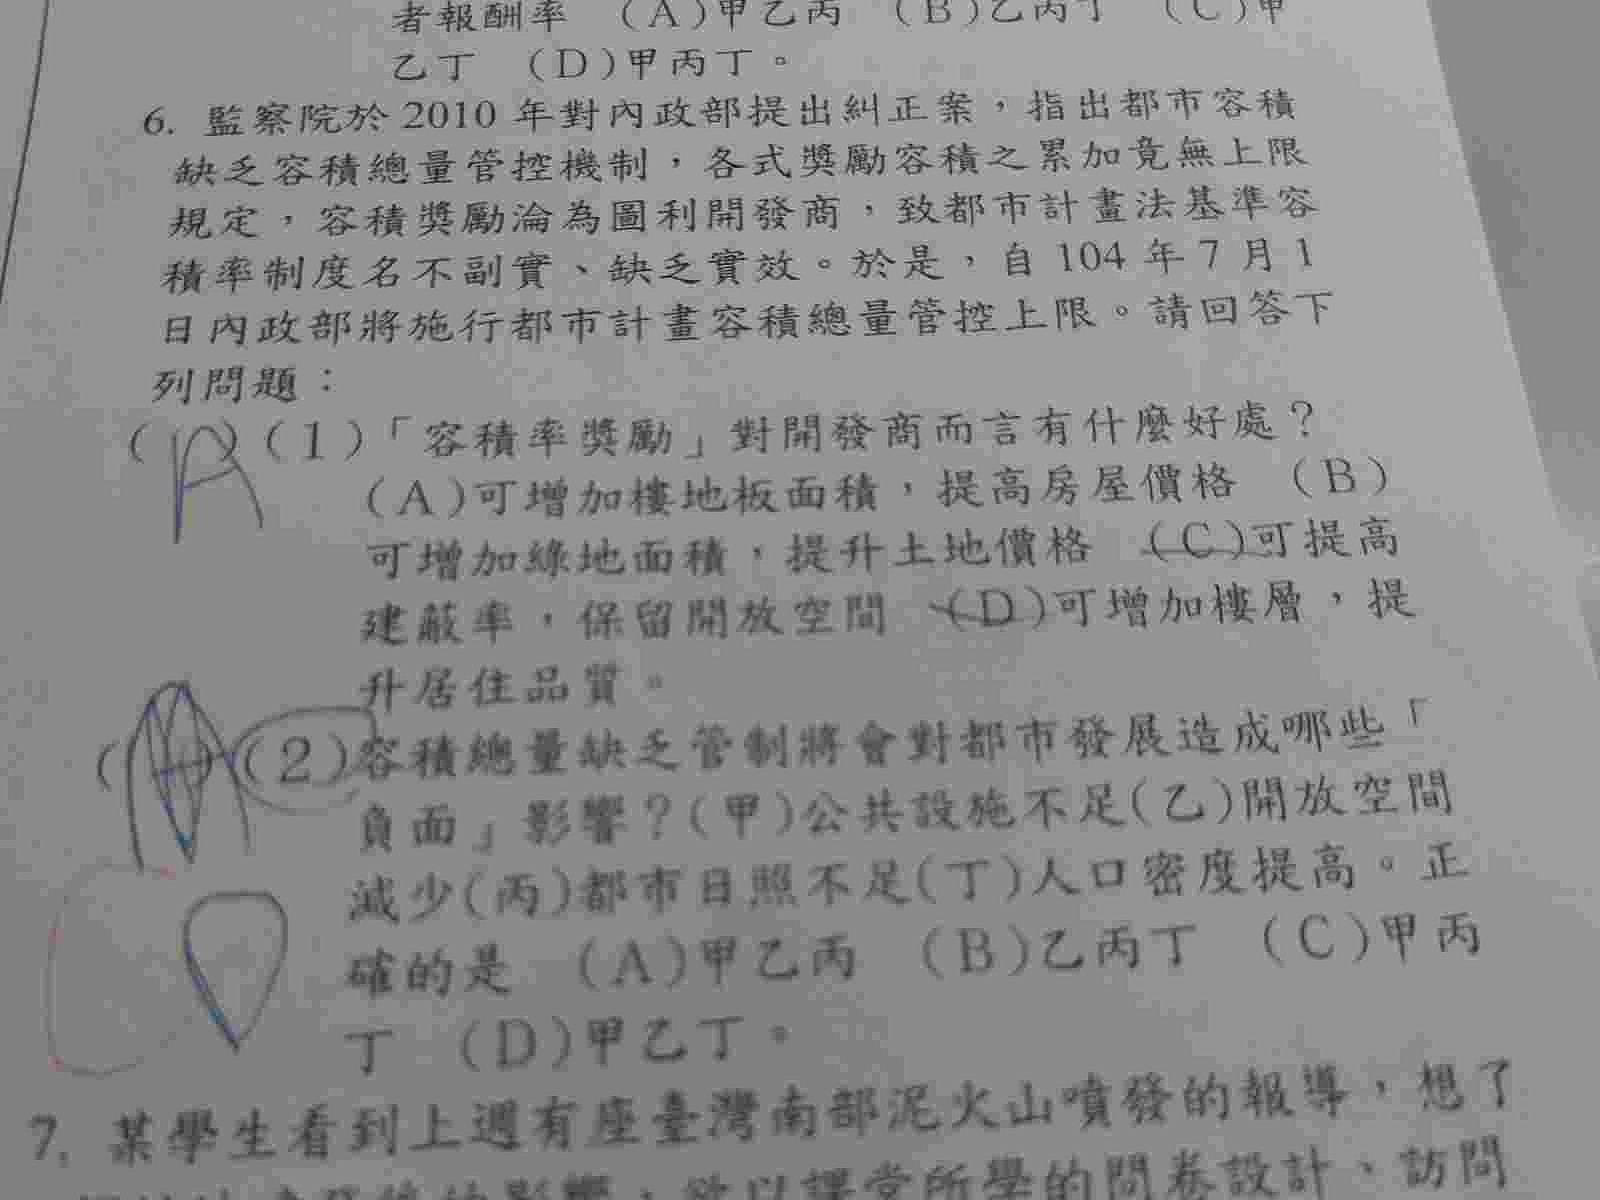 者報酬率 (A)甲乙丙 (B)乙丙丁 (C)甲
乙丁 (D)甲丙丁。
6. 監察院於 2010 年對內政部提出糾正案，指出都市容積
缺乏容積總量管控機制，各式獎勵容積之累加竟無上限
規定，容積獎勵淪為圖利開發商，致都市計畫法基準容
積率制度名不副實、缺乏實效。於是，自 104 年 7 月 1
日內政部將施行都市計畫容積總量管控上限。請回答下
列問題：
( A )(1)「容積率獎勵」對開發商而言有什麼好處？
(A)可增加樓地板面積，提高房屋價格 (B)
可增加綠地面積，提升土地價格 (C)可提高
建蔽率，保留開放空間 (D)可增加樓層，提
升居住品質。
( )(2)容積總量缺乏管制將會對都市發展造成哪些「
負面」影響？(甲)公共設施不足(乙)開放空間
減少(丙)都市日照不足(丁)人口密度提高。正
確的是 (A)甲乙丙 (B)乙丙丁 (C)甲丙
丁 (D)甲乙丁。
7. 某學生看到上週有座臺灣南部泥火山噴發的報導，想了
影響，欲以課堂所學的問卷設計、訪問